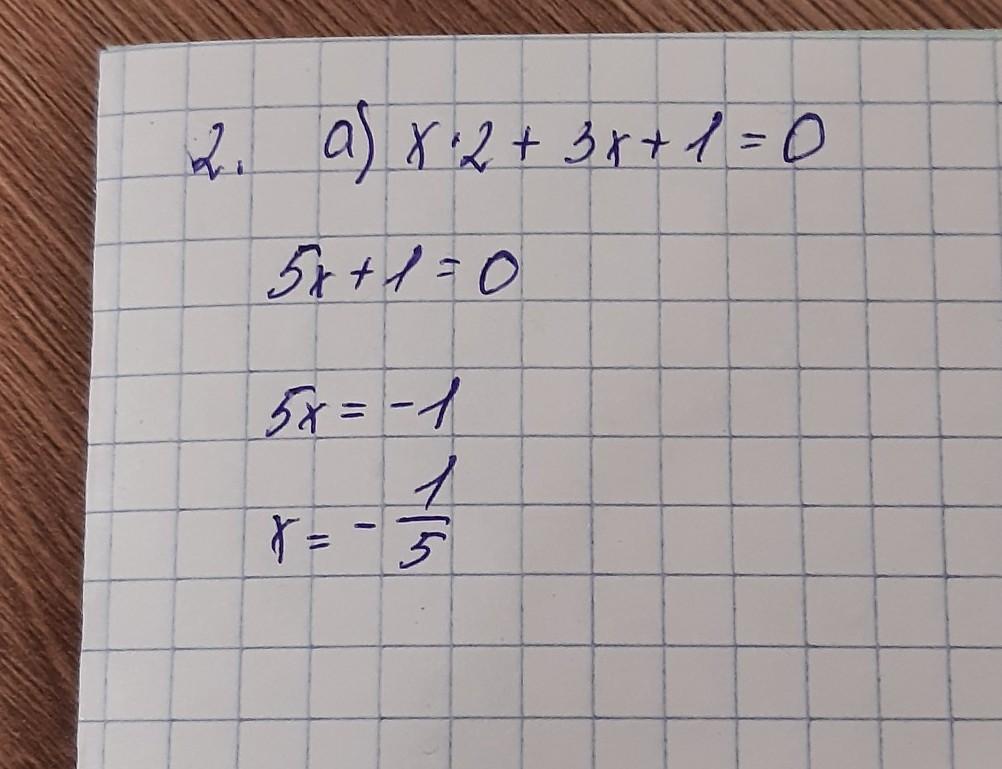 2. а) x·2 + 3x + 1 = 0
5x + 1 = 0
5x = -1
x = - 1/5